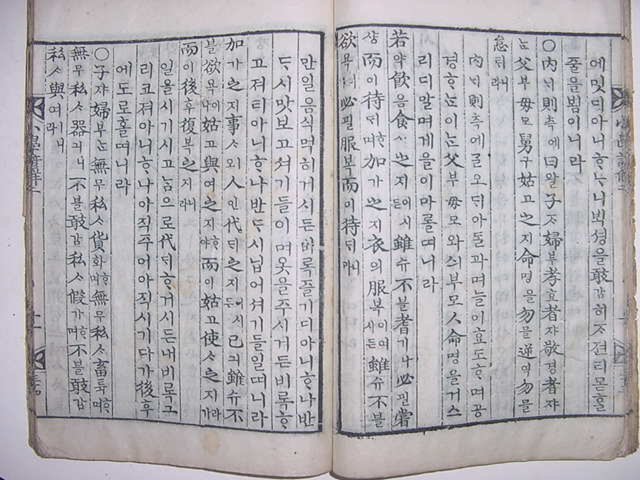 에밋디아니ᄒᆞᄂᆞ니ᄇᆡᆨ셩을敢감히ᄌᆞ젼티몯ᄒᆞᆯ
줄을뵘이니라
○內ᄂᆡ則측에曰왈子ᄌᆞ婦부孝효者쟈敬경者쟈
ᄂᆞᆫ父부母모舅구姑고之지命명을勿믈逆역勿믈
怠ᄐᆡ니라
內ᄂᆡ則측에ᄀᆞᆯ오ᄃᆡ아ᄃᆞᆯ과며ᄂᆞᆯ이효도ᄒᆞ며공
경ᄒᆞᄂᆞᆫ이ᄂᆞᆫ父부母모와싀부모人命명을거스
리디말며게을이마롤띠니라
若약飮음食ᄉᆞ之지어시든雖슈不블耆기나必필嘗
샹而이待ᄃᆡᄒᆞ며加가之지衣의服복이어시든雖슈不블
欲욕이나必필服복而이待ᄃᆡ니라
만일음식먹히거시든비록즐기디아니ᄒᆞ나반
ᄃᆞ시맛보고셔기들이며옷을주시거든비록ᄒᆞ
고져티아니ᄒᆞ나반ᄃᆞ시닙어셔기들일띠니라
加가之지事ᄉᆞㅣ오人인代ᄃᆡ之지어시든己긔雖슈不
블欲욕이나姑고與여之지ᄒᆞ야而이姑고使ᄉᆞ之지라가
而이後후復부之지니라
일을시기시고ᄂᆞᆷ으로代ᄃᆡᄒᆞ거시든내비록구
리코져아니ᄒᆞ나아직주어아직시기다가後후
에도로ᄒᆞᆯ띠니라
○子ᄌᆞ婦부ᄂᆞᆫ無무私ᄉᆞ貨화ᄒᆞ며無무私ᄉᆞ畜튝ᄒᆞ며
無무私ᄉᆞ器긔니不블敢감私ᄉᆞ假가ᄒᆞ며不블敢감
私ᄉᆞ與여ㅣ니라